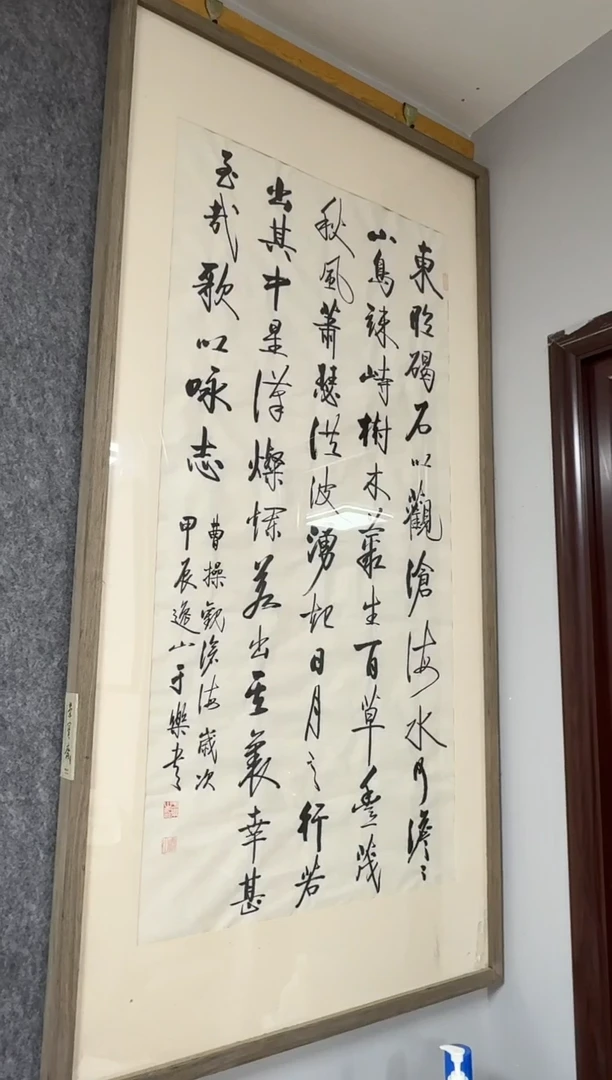 東臨碣石以觀滄海水何澹〻
山島竦峙樹木叢生百草豐茂
秋風蕭瑟洪波湧起日月之行若
出其中星漢燦爛若出其裏幸甚
至哉歌以咏志
曹操觀滄海歲次
甲辰逸山于樂書